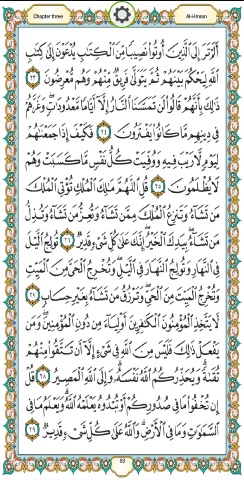 Chapter three
Al-Imran
أَلَمْ تَرَ إِلَى ٱلَّذِينَ أُوتُوا۟ نَصِيبًا مِّنَ ٱلْكِتَٰبِ يُدْعَوْنَ إِلَىٰ كِتَٰبِ
ٱللَّهِ لِيَحْكُمَ بَيْنَهُمْ ثُمَّ يَتَوَلَّىٰ فَرِيقٌ مِّنْهُمْ وَهُم مُّعْرِضُونَ ٢٣
ذَٰلِكَ بِأَنَّهُمْ قَالُوا۟ لَن تَمَسَّنَا ٱلنَّارُ إِلَّآ أَيَّامًا مَّعْدُودَٰتٍ وَغَرَّهُمْ
فِى دِينِهِم مَّا كَانُوا۟ يَفْتَرُونَ ٢٤ فَكَيْفَ إِذَا جَمَعْنَٰهُمْ
لِيَوْمٍ لَّا رَيْبَ فِيهِ وَوُفِّيَتْ كُلُّ نَفْسٍ مَّا كَسَبَتْ وَهُمْ
لَا يُظْلَمُونَ ٢٥ قُلِ ٱللَّهُمَّ مَٰلِكَ ٱلْمُلْكِ تُؤْتِى ٱلْمُلْكَ
مَن تَشَآءُ وَتَنزِعُ ٱلْمُلْكَ مِمَّن تَشَآءُ وَتُعِزُّ مَن تَشَآءُ وَتُذِلُّ
مَن تَشَآءُ بِيَدِكَ ٱلْخَيْرُ إِنَّكَ عَلَىٰ كُلِّ شَىْءٍ قَدِيرٌ ٢٦ تُولِجُ ٱلَّيْلَ
فِى ٱلنَّهَارِ وَتُولِجُ ٱلنَّهَارَ فِى ٱلَّيْلِ وَتُخْرِجُ ٱلْحَىَّ مِنَ ٱلْمَيِّتِ
وَتُخْرِجُ ٱلْمَيِّتَ مِنَ ٱلْحَىِّ وَتَرْزُقُ مَن تَشَآءُ بِغَيْرِ حِسَابٍ ٢٧
لَّا يَتَّخِذِ ٱلْمُؤْمِنُونَ ٱلْكَٰفِرِينَ أَوْلِيَآءَ مِن دُونِ ٱلْمُؤْمِنِينَ وَمَن
يَفْعَلْ ذَٰلِكَ فَلَيْسَ مِنَ ٱللَّهِ فِى شَىْءٍ إِلَّآ أَن تَتَّقُوا۟ مِنْهُمْ
تُقَىٰةً وَيُحَذِّرُكُمُ ٱللَّهُ نَفْسَهُۥ وَإِلَى ٱللَّهِ ٱلْمَصِيرُ ٢٨ قُلْ
إِن تُخْفُوا۟ مَا فِى صُدُورِكُمْ أَوْ تُبْدُوهُ يَعْلَمْهُ ٱللَّهُ وَيَعْلَمُ مَا فِى
ٱلسَّمَٰوَٰتِ وَمَا فِى ٱلْأَرْضِ وَٱللَّهُ عَلَىٰ كُلِّ شَىْءٍ قَدِيرٌ ٢٩
53